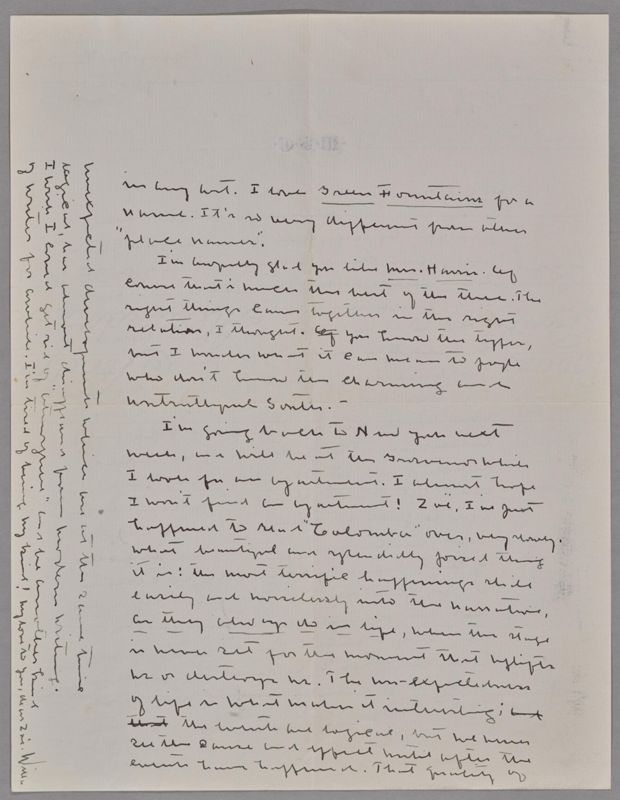 in any art. I love Green Fountains for a
name. It's so very different from other
"place names".
I'm awfully glad you like Mrs. Harris. Of
course that is much the best of the three. The
right things came together in the right
relation, I thought. If you know the types,
but I wonder what it can mean to people
who don't know the charming and
untruthful South. -
I'm going back to New York next
week, and will be at the Grosvenor while
I look for an apartment. I almost hope
I won't find an apartment! Zoë, I've just
happened to read "Colomba" over, very slowly.
What a beautiful and splendidly poised thing
it is! The most terrific happenings slide
easily and noiselessly into the narrative,
as they always do in life, when the stage
is never set for the moment that uplifts
us or destroys us. The un-expectedness
of life is what makes it interesting; and
that the events are logical, but we never
see the cause and effect until after the
events have happened. That quality of
unexpected developments which are at the same time
logical, has almost disappeared from modern writing.
I wish I could get rid of "atmosphere" and be another kind
of writer for awhile. I'm tired of being my kind! My love to you, dear Zoë. Willa